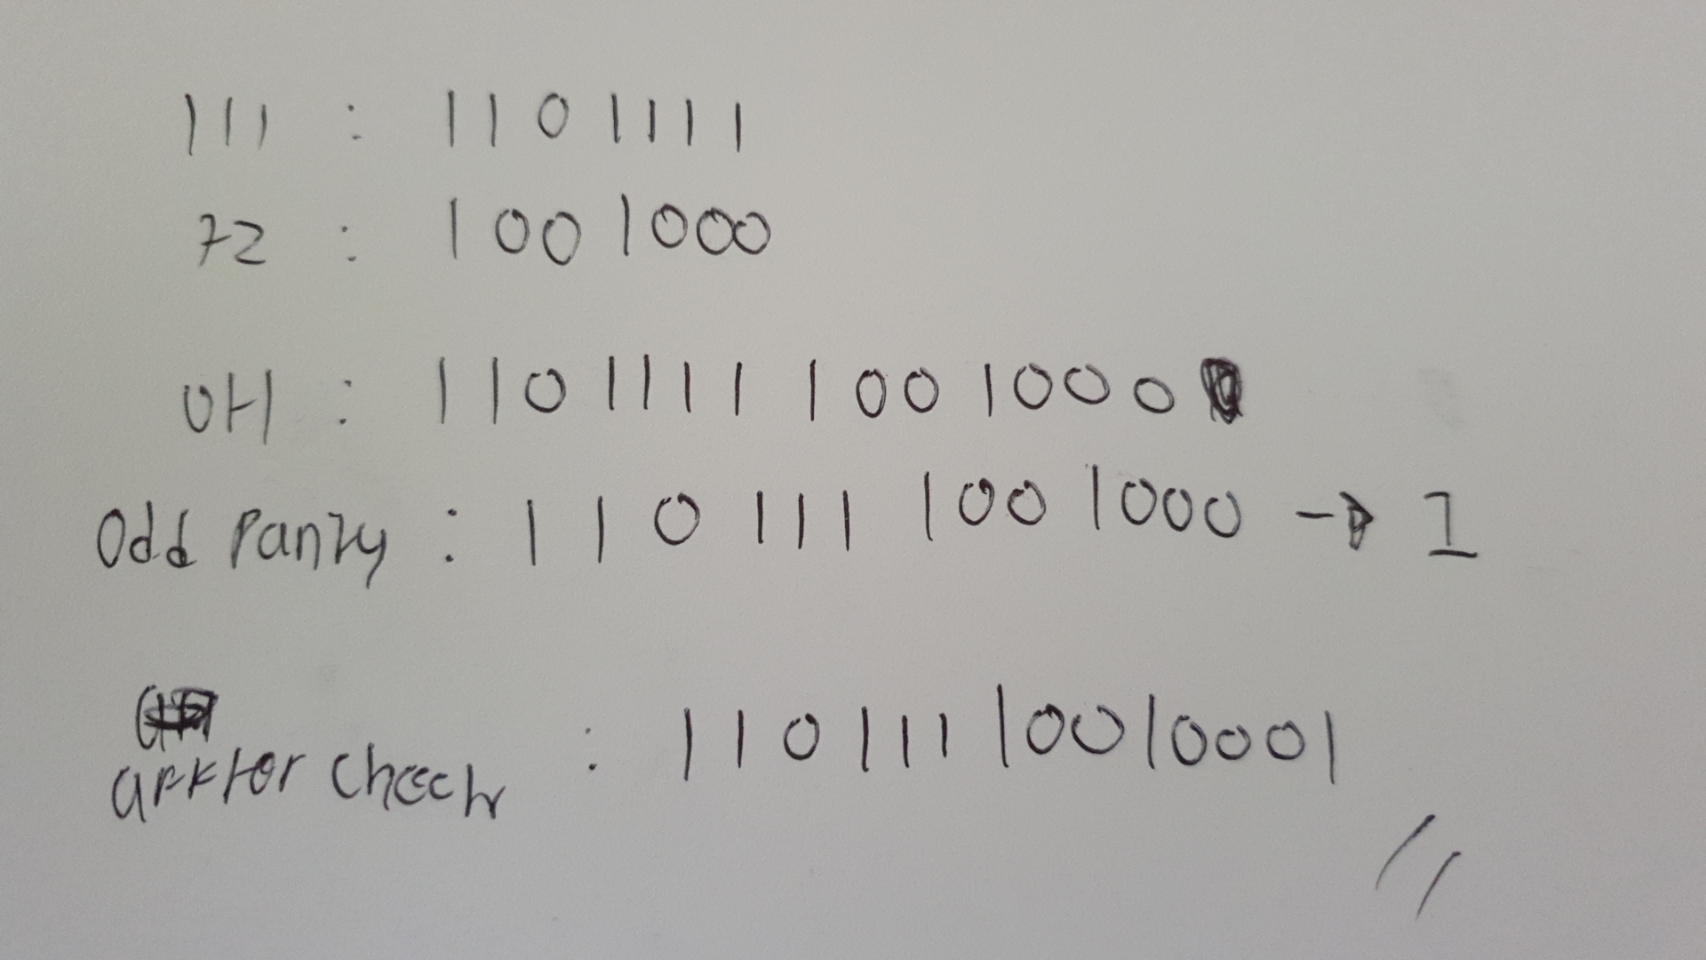 111 : 1101111
72 : 1001000
OH : 1101111 1001000
Odd Parity : 110111 1001000 → 1
: 11011110010001